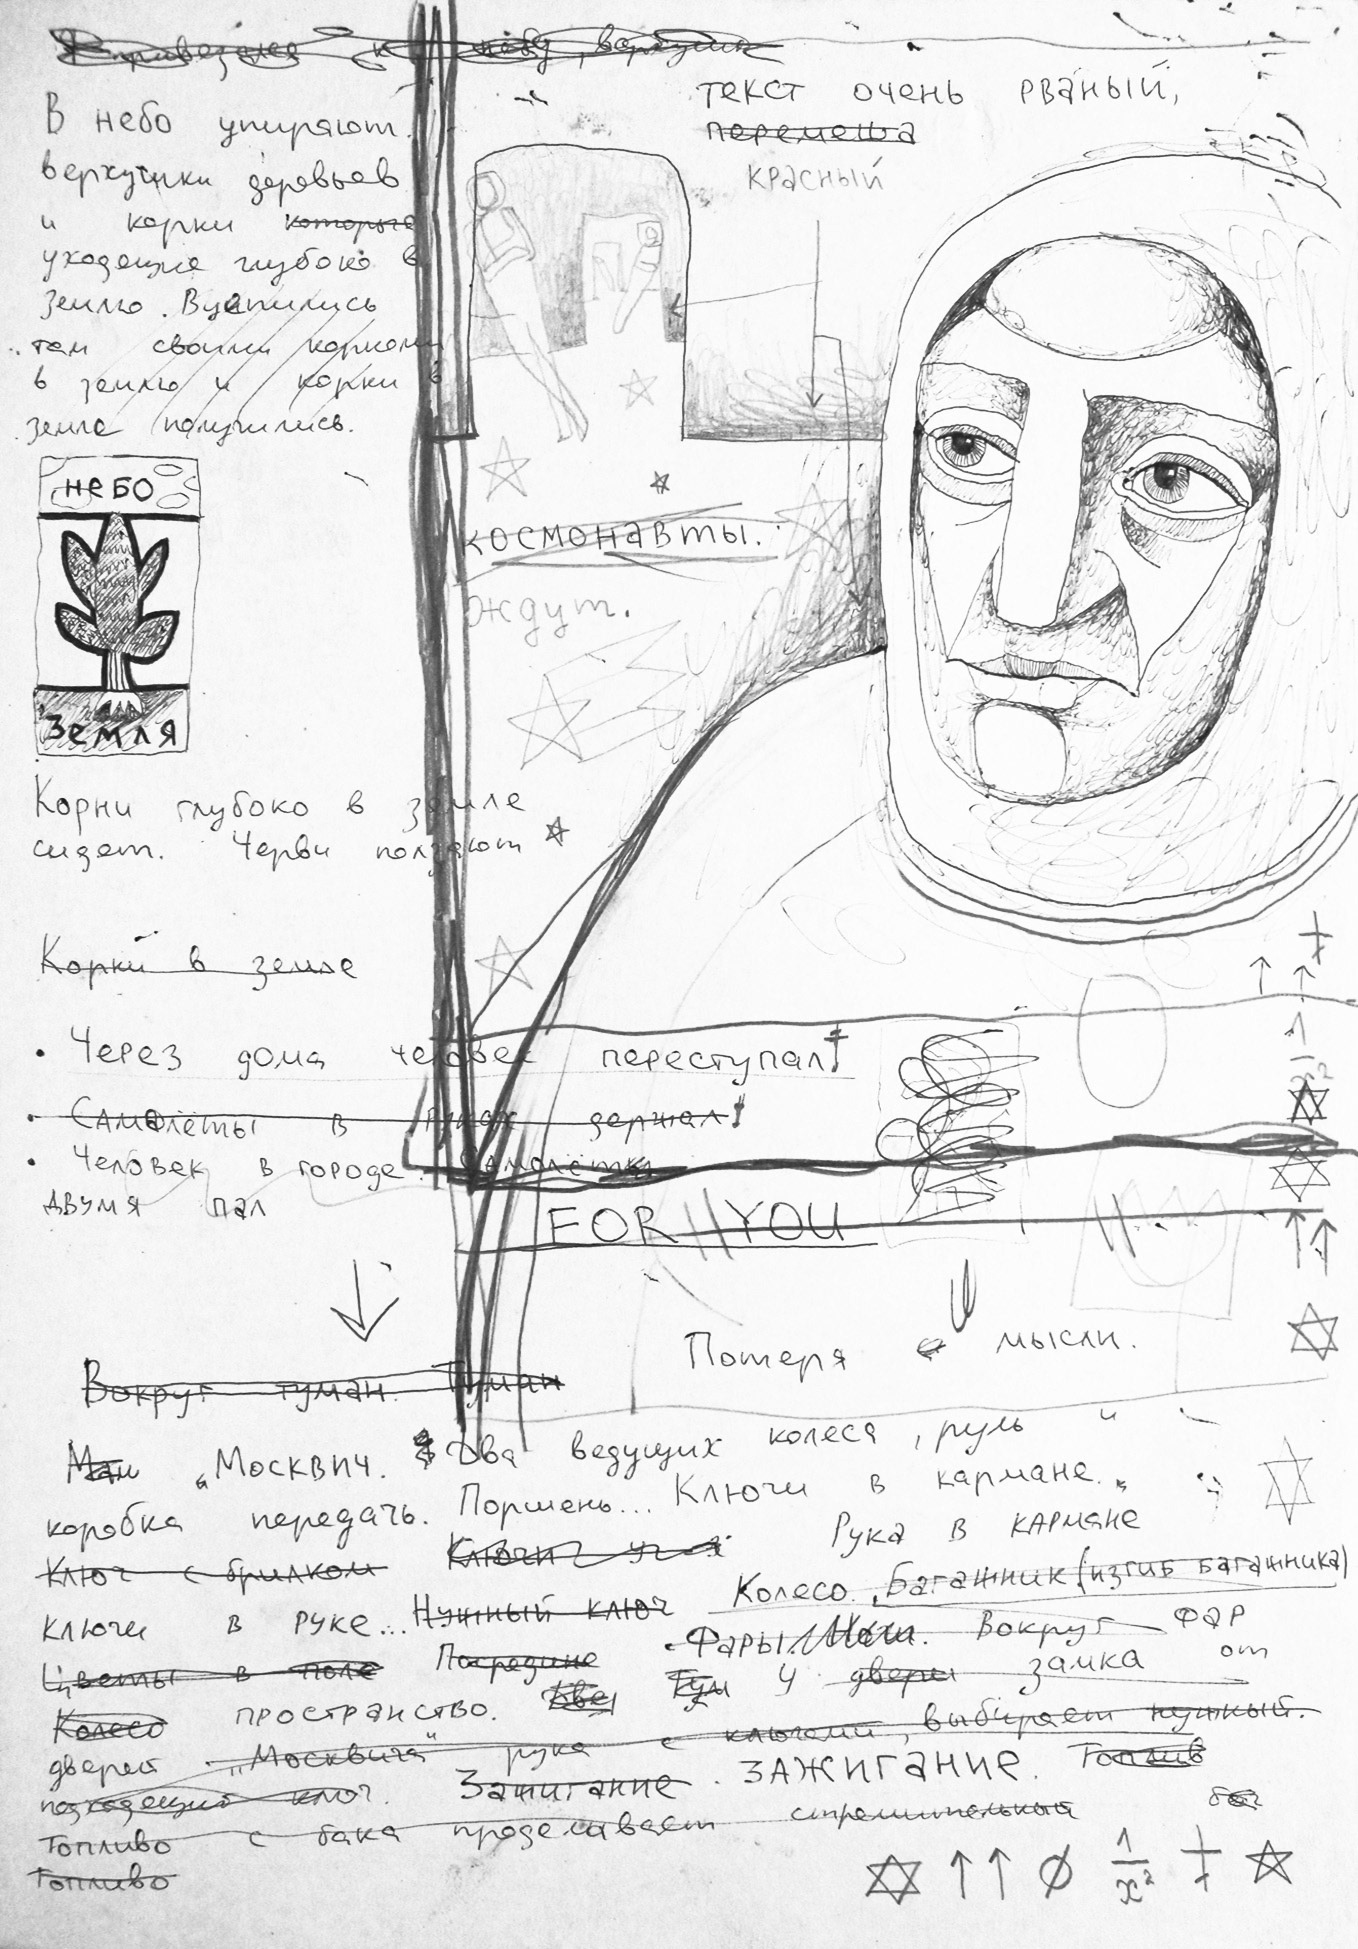 текст очень рваный,
перемеша
красный
В небо упирают.
верхушки деревьев
и корни которые
уходящие глубоко в
землю. Вцепились
там своими корнями
в землю и корни в
земле получились.
небо
Земля
космонавты.
ждут.
Корни глубоко в земле
сидят. Черви ползают
Корни в земле
• Через дома человек переступал!
• Самолёты в руках держал!
• Человек в городе. Самолёты
двумя пал
FOR YOU
Потеря мысли.
Вокруг туман. Туман
„Москвич. Два ведущих колеса, руль и
коробка передачь. Поршень... Ключи в кармане.
Рука в кармане
Ключ с брилком Ключи
ключи в руке... Нужный ключ Колесо. Багажник (изгиб багажника)
Цветы в поле Посредине Фары. Вокруг фар
Колесо пространство. У двери замка от
дверей „Москвича" рука с ключами, выбирает нужный.
подходящий ключ. Зажигание. ЗАЖИГАНИЕ. Топлив
Топливо с бака проделывает стремительный
Топливо
1/x²